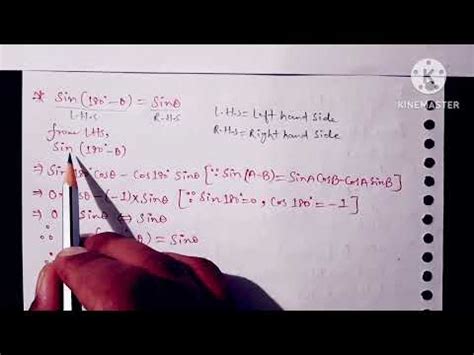 Sin(180°-θ) = Sinθ
L.H.S R.H.S
L.H.S = Left hand Side
R.H.S = Right hand Side
from LHS,
Sin(180°-θ)
⇒ Sin Cosθ - Cos180° Sinθ [∵ Sin(A-B) = SinA CosB - CosA SinB]
⇒ 0 θ - (-1) × Sinθ [∵ Sin180° = 0, Cos180° = -1]
⇒ 0 Sinθ ⇔ Sinθ
∵ θ) = Sinθ
KINEMASTER